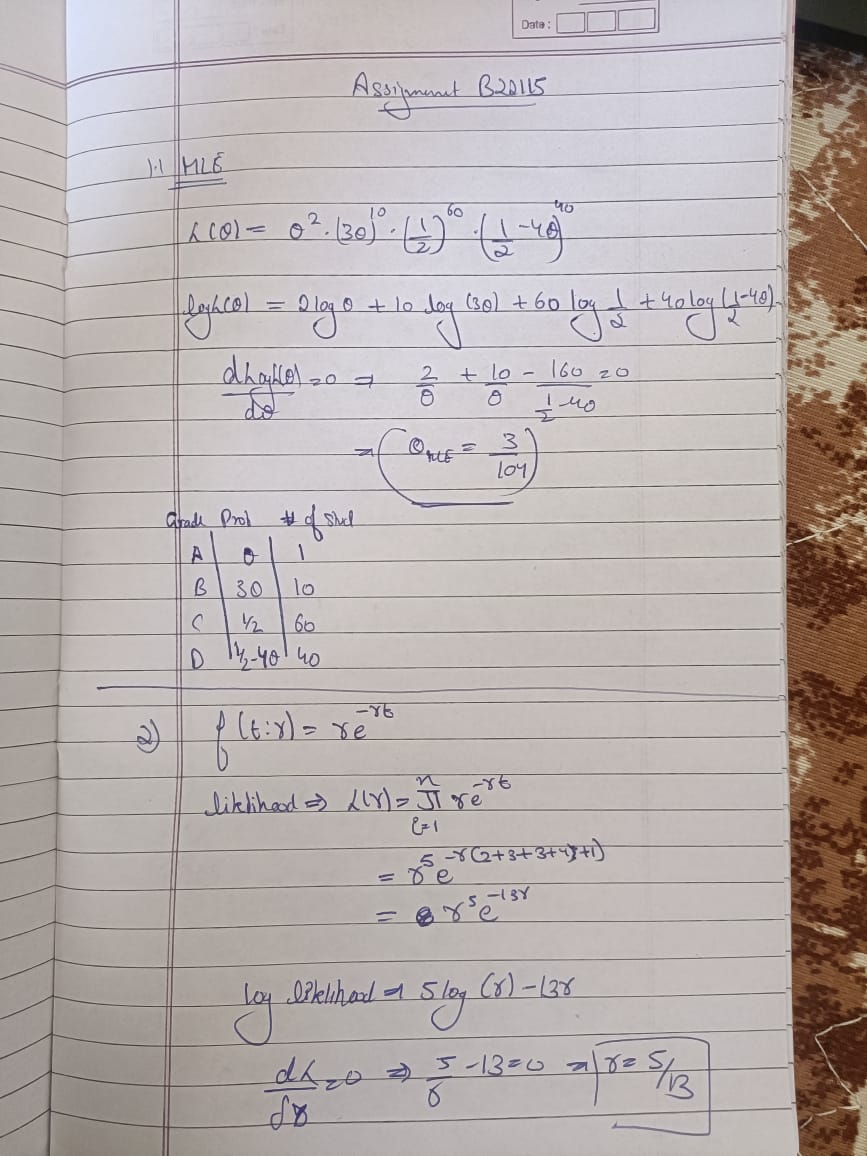 Date :
Assignment B20115
1.1 MLE
L(θ) = θ². (3θ)¹⁰. (1/2)⁶⁰. (1/2 - 4θ)⁴⁰
log L(θ) = 2 log θ + 10 log (3θ) + 60 log 1/2 + 40 log (1/2 - 4θ)
d log L(θ)/dθ = 0 ⇒ 2/θ + 10/θ - 160/(1/2 - 4θ) = 0
⇒ θMLE = 3/104
Grade Prob # of Stud
A θ 1
B 3θ 10
C 1/2 60
D 1/2-4θ 40
2) f(t:γ) = γe^-γt
liklihood ⇒ L(γ) = ∏ᵢ₌₁ⁿ γe^-γt
= γ⁵ e^-γ(2+3+3+4+1)
= γ⁵e^-13γ
log likelihood ⇒ 5 log (γ) - 13γ
dL/dγ = 0 ⇒ 5/γ - 13 = 0 ⇒ γ = 5/13